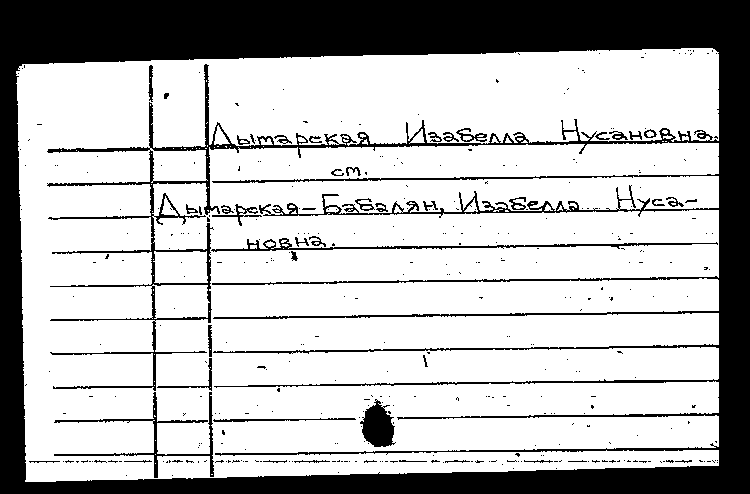 Дытарская, Изабелла Нусановна.
см.
Дытарская-Бабалян, Изабелла Нуса-
новна.